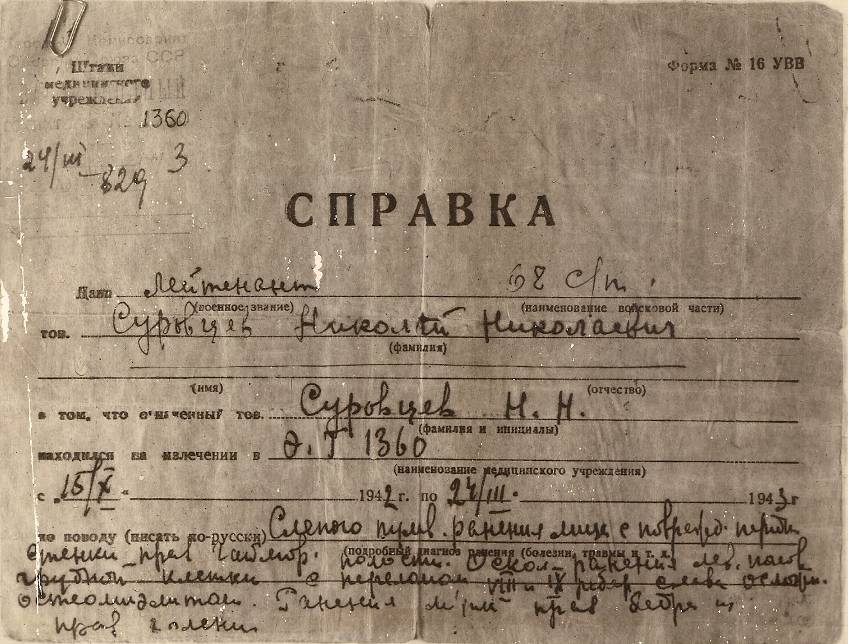 Форма № 16 УВВ
Штамп
медицинского
учреждения
1360
24/III 829 3
СПРАВКА
Дана Лейтенант 68 с/п.
(военное звание) (наименование войсковой части)
тов. Суровцев Николай Николаевич
(фамилия)
(имя) (отчество)
в том, что означенный тов. Суровцев Н. Н.
(фамилия и инициалы)
находился на излечении в Э.Г 1360
(наименование медицинского учреждения)
с „15/X “ 1942 г. по 24/III. 1943 г
по поводу (писать по-русски) Слепого пулев. ранения лица с поврежд.
(подробный диагноз ранения (болезни, травмы и т. д.)
стенки прав гаймор. полости. Оскол. ранения лев. полов.
грудной клетки с переломом VIII и IX ребер слева ослож.
остеомиэлитом. Ранения прав бедра и
прав голени